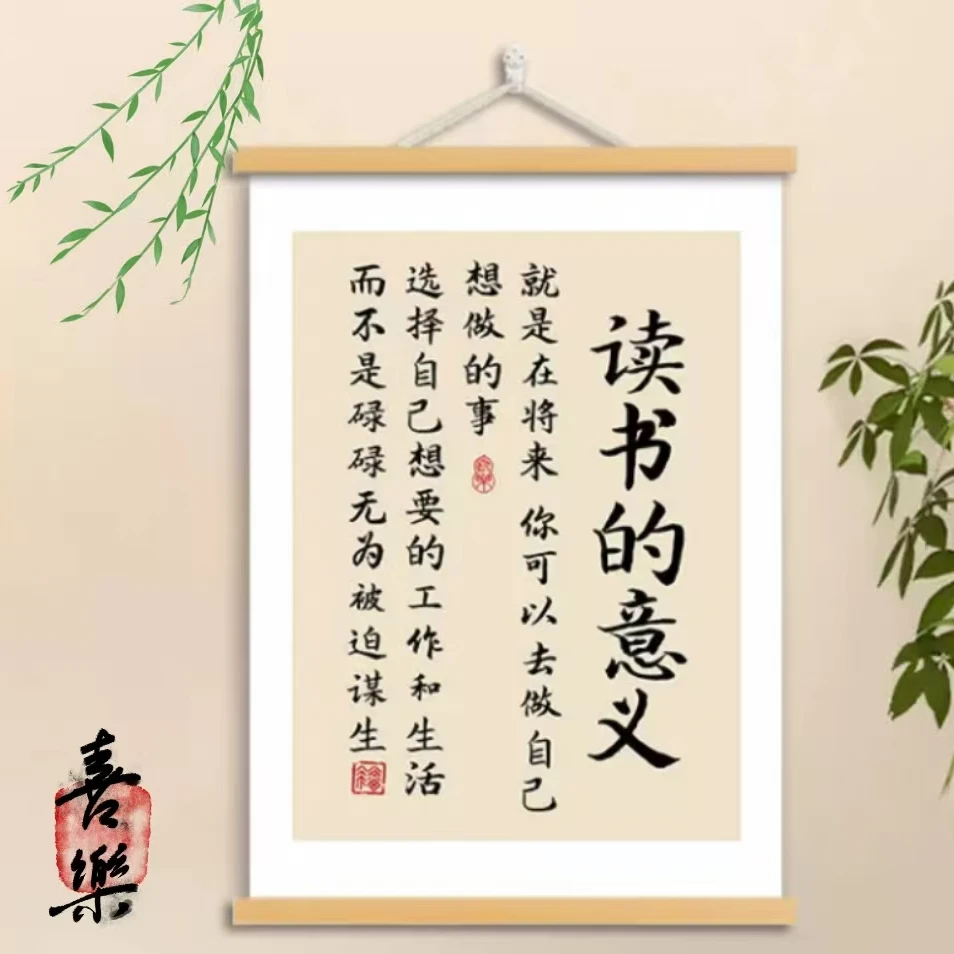 读书的意义
就是在将来 你可以去做自己
想做的事
选择自己想要的工作和生活
而不是碌碌无为被迫谋生
喜樂